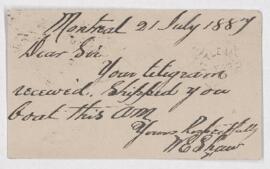 Montreal 21 July 1887
Dear Sir
Your telegram
received. Shipped you
boat this AM
Yours Respectfully
W E Shaw